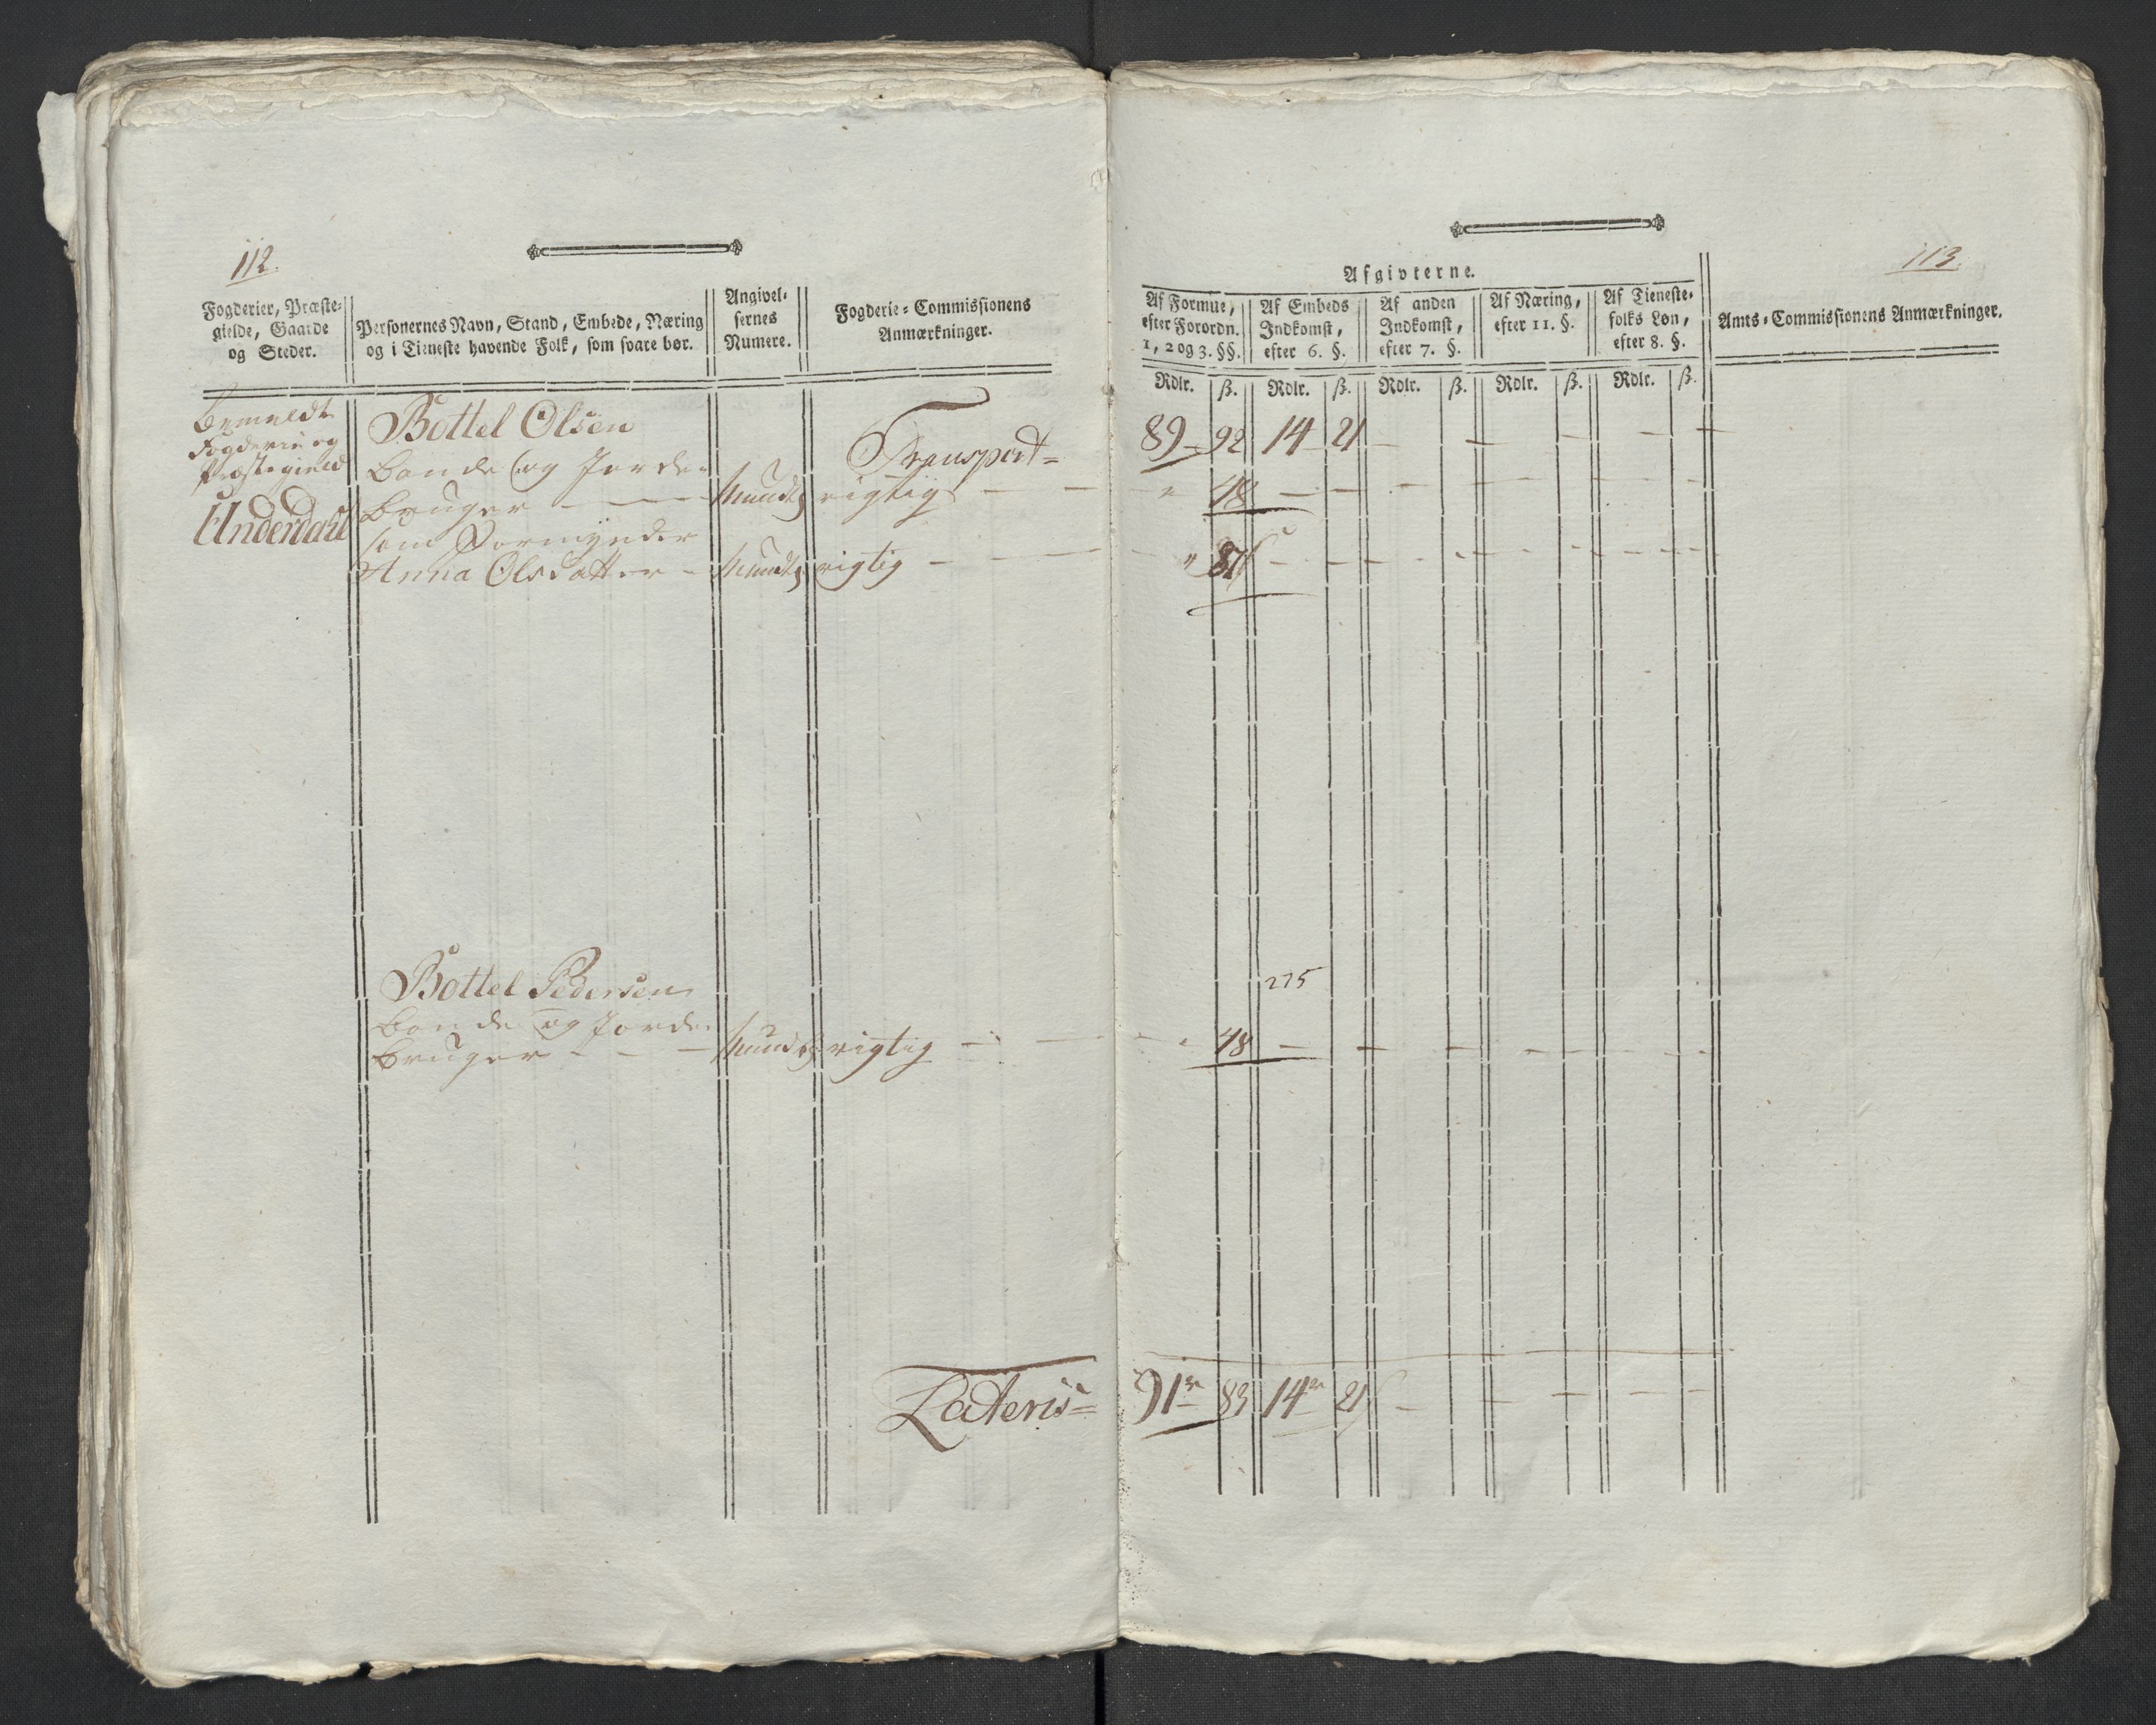 112.
Fogderier, Præste-
gielde, Gaarde
og Steder.
Personernes Navn, Stand, Embede, Næring
og i Tieneste havende Folk, som svare bør.
Angivel-
sernes
Numere.
Fogderie-Commissionens
Anmærkninger.
bemeldte
Fogderie og
Præstegield
Underdahl
Bottel Olsen
bonde og Jorde-
bruger — — mundtl rigtig — —
som Formynder
Anna Olsdatter — mundtl rigtig — —
Transport =
Bottel Pedersen
bonde og Jorde-
bruger — — — mundtl rigtig — —
Lateris =
113.
Afgivterne.
Af Formue,
efter Forordn.
1, 2 og 3. §§.
Af Embeds
Indkomst,
efter 6. §.
Af anden
Indkomst,
efter 7. §.
Af Næring,
efter 11. §.
Af Tieneste-
folks Løn,
efter 8. §.
Amts-Commissionens Anmærkninger.
Rdlr. ß. Rdlr. ß. Rdlr. ß. Rdlr. ß. Rdlr. ß.
89 — 92 14 21 — — — —
" 48 — — — — — —
"
275
" 48 — — — — — —
91 83 14 21 — — — — —